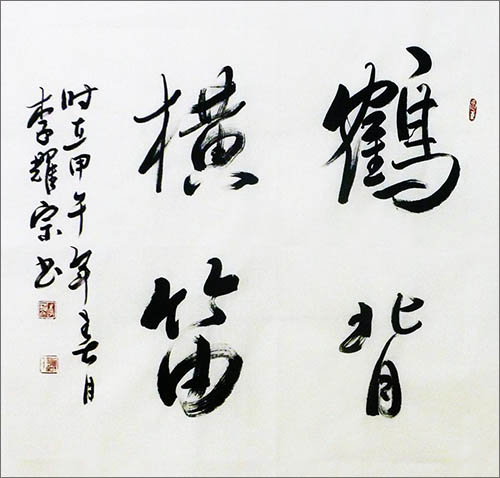 鹤背
横笛
时在甲午年春月
李耀宗书